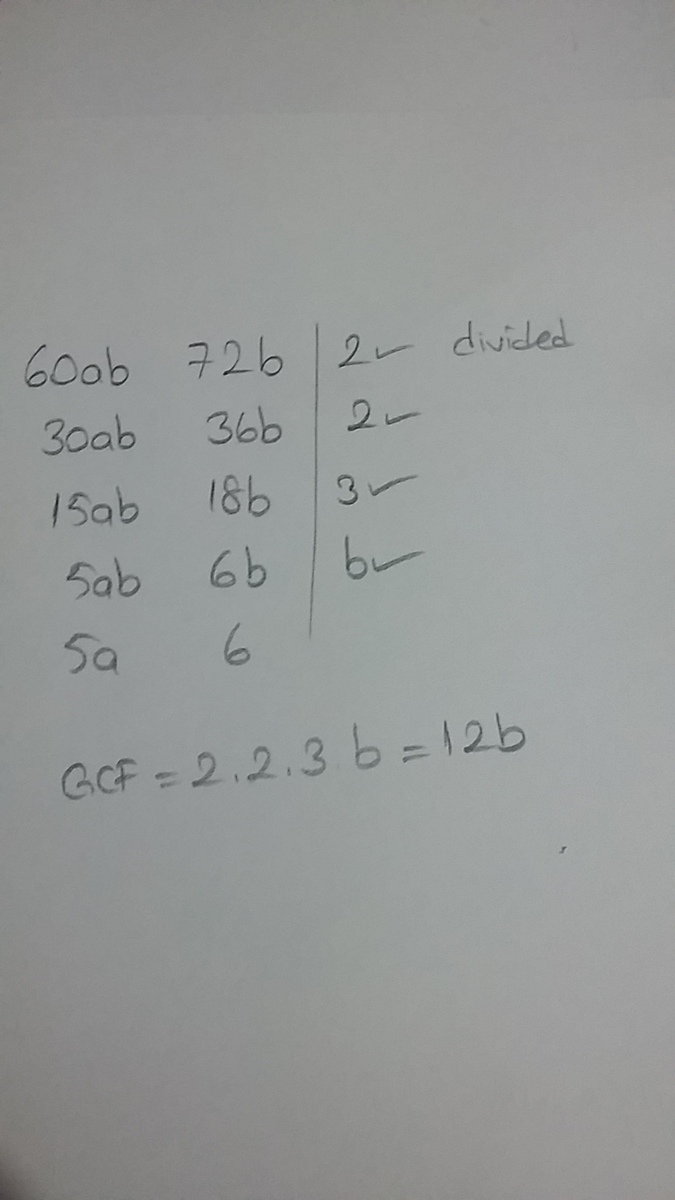 60ab 72b | 2✓ divided
30ab 36b | 2✓
15ab 18b | 3✓
5ab 6b | b✓
5a 6
GCF = 2.2.3.b = 12b